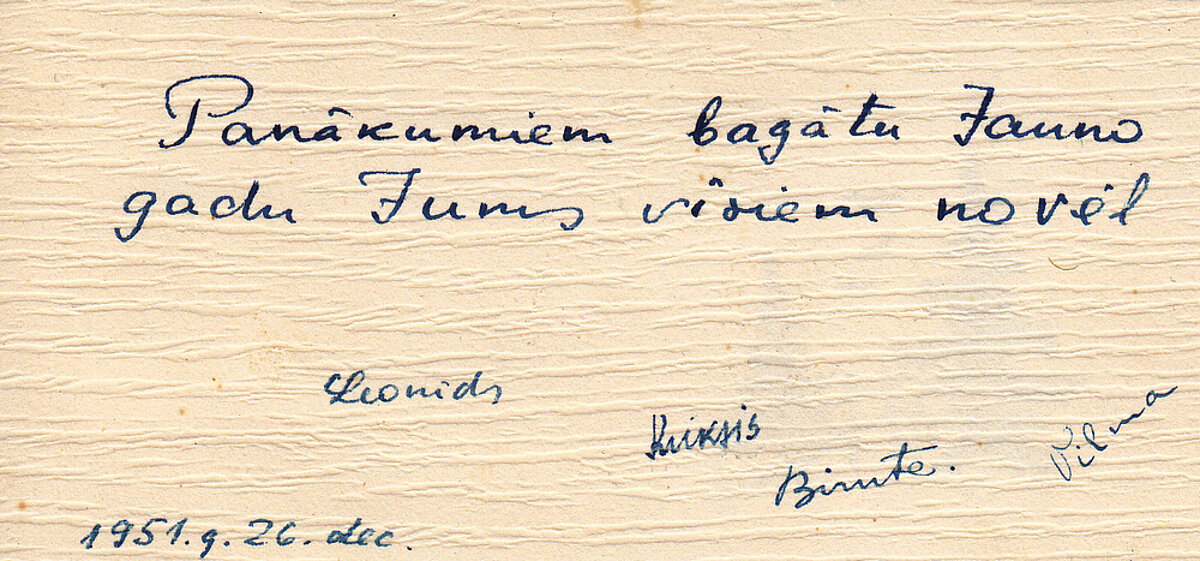 Panākumiem bagātu Jauno
gadu Jums visiem novēl
Leonids
Birute.
Vilma
1951.g. 26. dec.